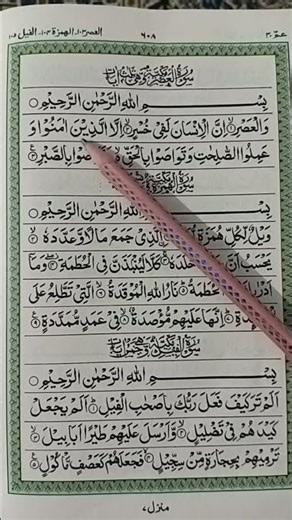 عمّ ٣٠ ٦٠٨ العصر ١٠٣ الهمزة ١٠٤ الفيل ١٠٥
سُوْرَةُ الْعَصْرِ مَكِّيَّةٌ وَّهِيَ ثَلٰثُ اٰيَاتٍ
بِسْمِ اللّٰهِ الرَّحْمٰنِ الرَّحِيْمِ ○
وَالْعَصْرِ ۙ﴿١﴾ اِنَّ الْاِنْسَانَ لَفِيْ خُسْرٍ ۙ﴿٢﴾ اِلَّا الَّذِيْنَ اٰمَنُوْا وَ
عَمِلُوا الصّٰلِحٰتِ وَتَوَاصَوْا بِالْحَقِّ بِالصَّبْرِ ﴿٣﴾
سُوْرَةُ الْهُمَزَةِ
بِسْمِ اللّٰهِ الرَّحْمٰنِ الرَّحِيْمِ ○
وَيْلٌ لِّكُلِّ هُمَزَةٍ الَّذِيْ جَمَعَ مَالًا وَّعَدَّدَهٗ ۙ﴿٢﴾
يَحْسَبُ اَنَّ كَلَّا لَيُنْۢبَذَنَّ فِي الْحُطَمَةِ ﴿٤﴾ وَمَآ
نَارُ اللّٰهِ الْمُوْقَدَةُ ۙ﴿٦﴾ الَّتِيْ تَطَّلِعُ عَلَى
اِنَّهَا عَلَيْهِمْ مُّؤْصَدَةٌ ۙ﴿٨﴾ فِيْ عَمَدٍ مُّمَدَّدَةٍ ﴿٩﴾
سُوْرَةُ الْفِيْلِ مَكِّيَّةٌ وَّهِيَ خَمْسُ اٰيَاتٍ
بِسْمِ اللّٰهِ الرَّحْمٰنِ الرَّحِيْمِ ○
اَلَمْ تَرَ كَيْفَ فَعَلَ رَبُّكَ بِاَصْحٰبِ الْفِيْلِ ﴿١﴾ اَلَمْ يَجْعَلْ
كَيْدَهُمْ فِيْ تَضْلِيْلٍ ۙ﴿٢﴾ وَّاَرْسَلَ عَلَيْهِمْ طَيْرًا اَبَابِيْلَ ۙ﴿٣﴾
تَرْمِيْهِمْ بِحِجَارَةٍ مِّنْ سِجِّيْلٍ ۙ﴿٤﴾ فَجَعَلَهُمْ كَعَصْفٍ مَّاْكُوْلٍ ﴿٥﴾
منزل ٧